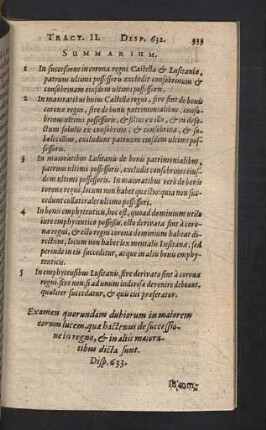 TRACT. II. DISP. 632. 333
SUMMARIUM.
1 In successione in corona regni Castellæ & Lusitaniæ,
patruus ultimi possessoris excludit consobrinum &
consobrinam eiusdem ultimi possessoris.
2 In maioratibus huius Castellæ regni, sive sint de bonis
coronæ regni, sive de bonis patrimonialibus, conso-
brinus ultimi possessoris, & filius ex illo, & in defe-
ctum sobolis ex consobrino, & consobrina, & so-
boles illius, excludunt patruum eiusdem ultimi pos-
sessoris.
3 In maioratibus Lusitaniæ de bonis patrimonialibus,
patruus ultimi possessoris, excludit consobrinum eius-
dem ultimi possessoris. In maioratibus verò de bonis
coronæ regni, locum non habet quæstio: quia non suc-
cedunt collaterales ultimo possessori.
4 In bonis emphyteuticis, hoc est, quoad dominium utile
iure emphyteutico possessis, esto derivata sint à coro-
na regni, & esto regni corona dominium habeat di-
rectum, locum non habet lex mentalis Lusitana, sed
perinde in eis succeditur, atque in aliis bonis emphy-
teuticis.
5 In emphyteusibus Lusitanis, sive derivatæ sint à coro-
na regni, sive non, si ad unum indivisè devenire debeant,
qualiter succedatur, & quis cui præferatur.
Examen quorundam dubiorum in maiorem
eorum lucem, quæ hactenus de successio-
ne in regno, & in aliis maiora-
tibus dicta sunt.
Disp. 633.